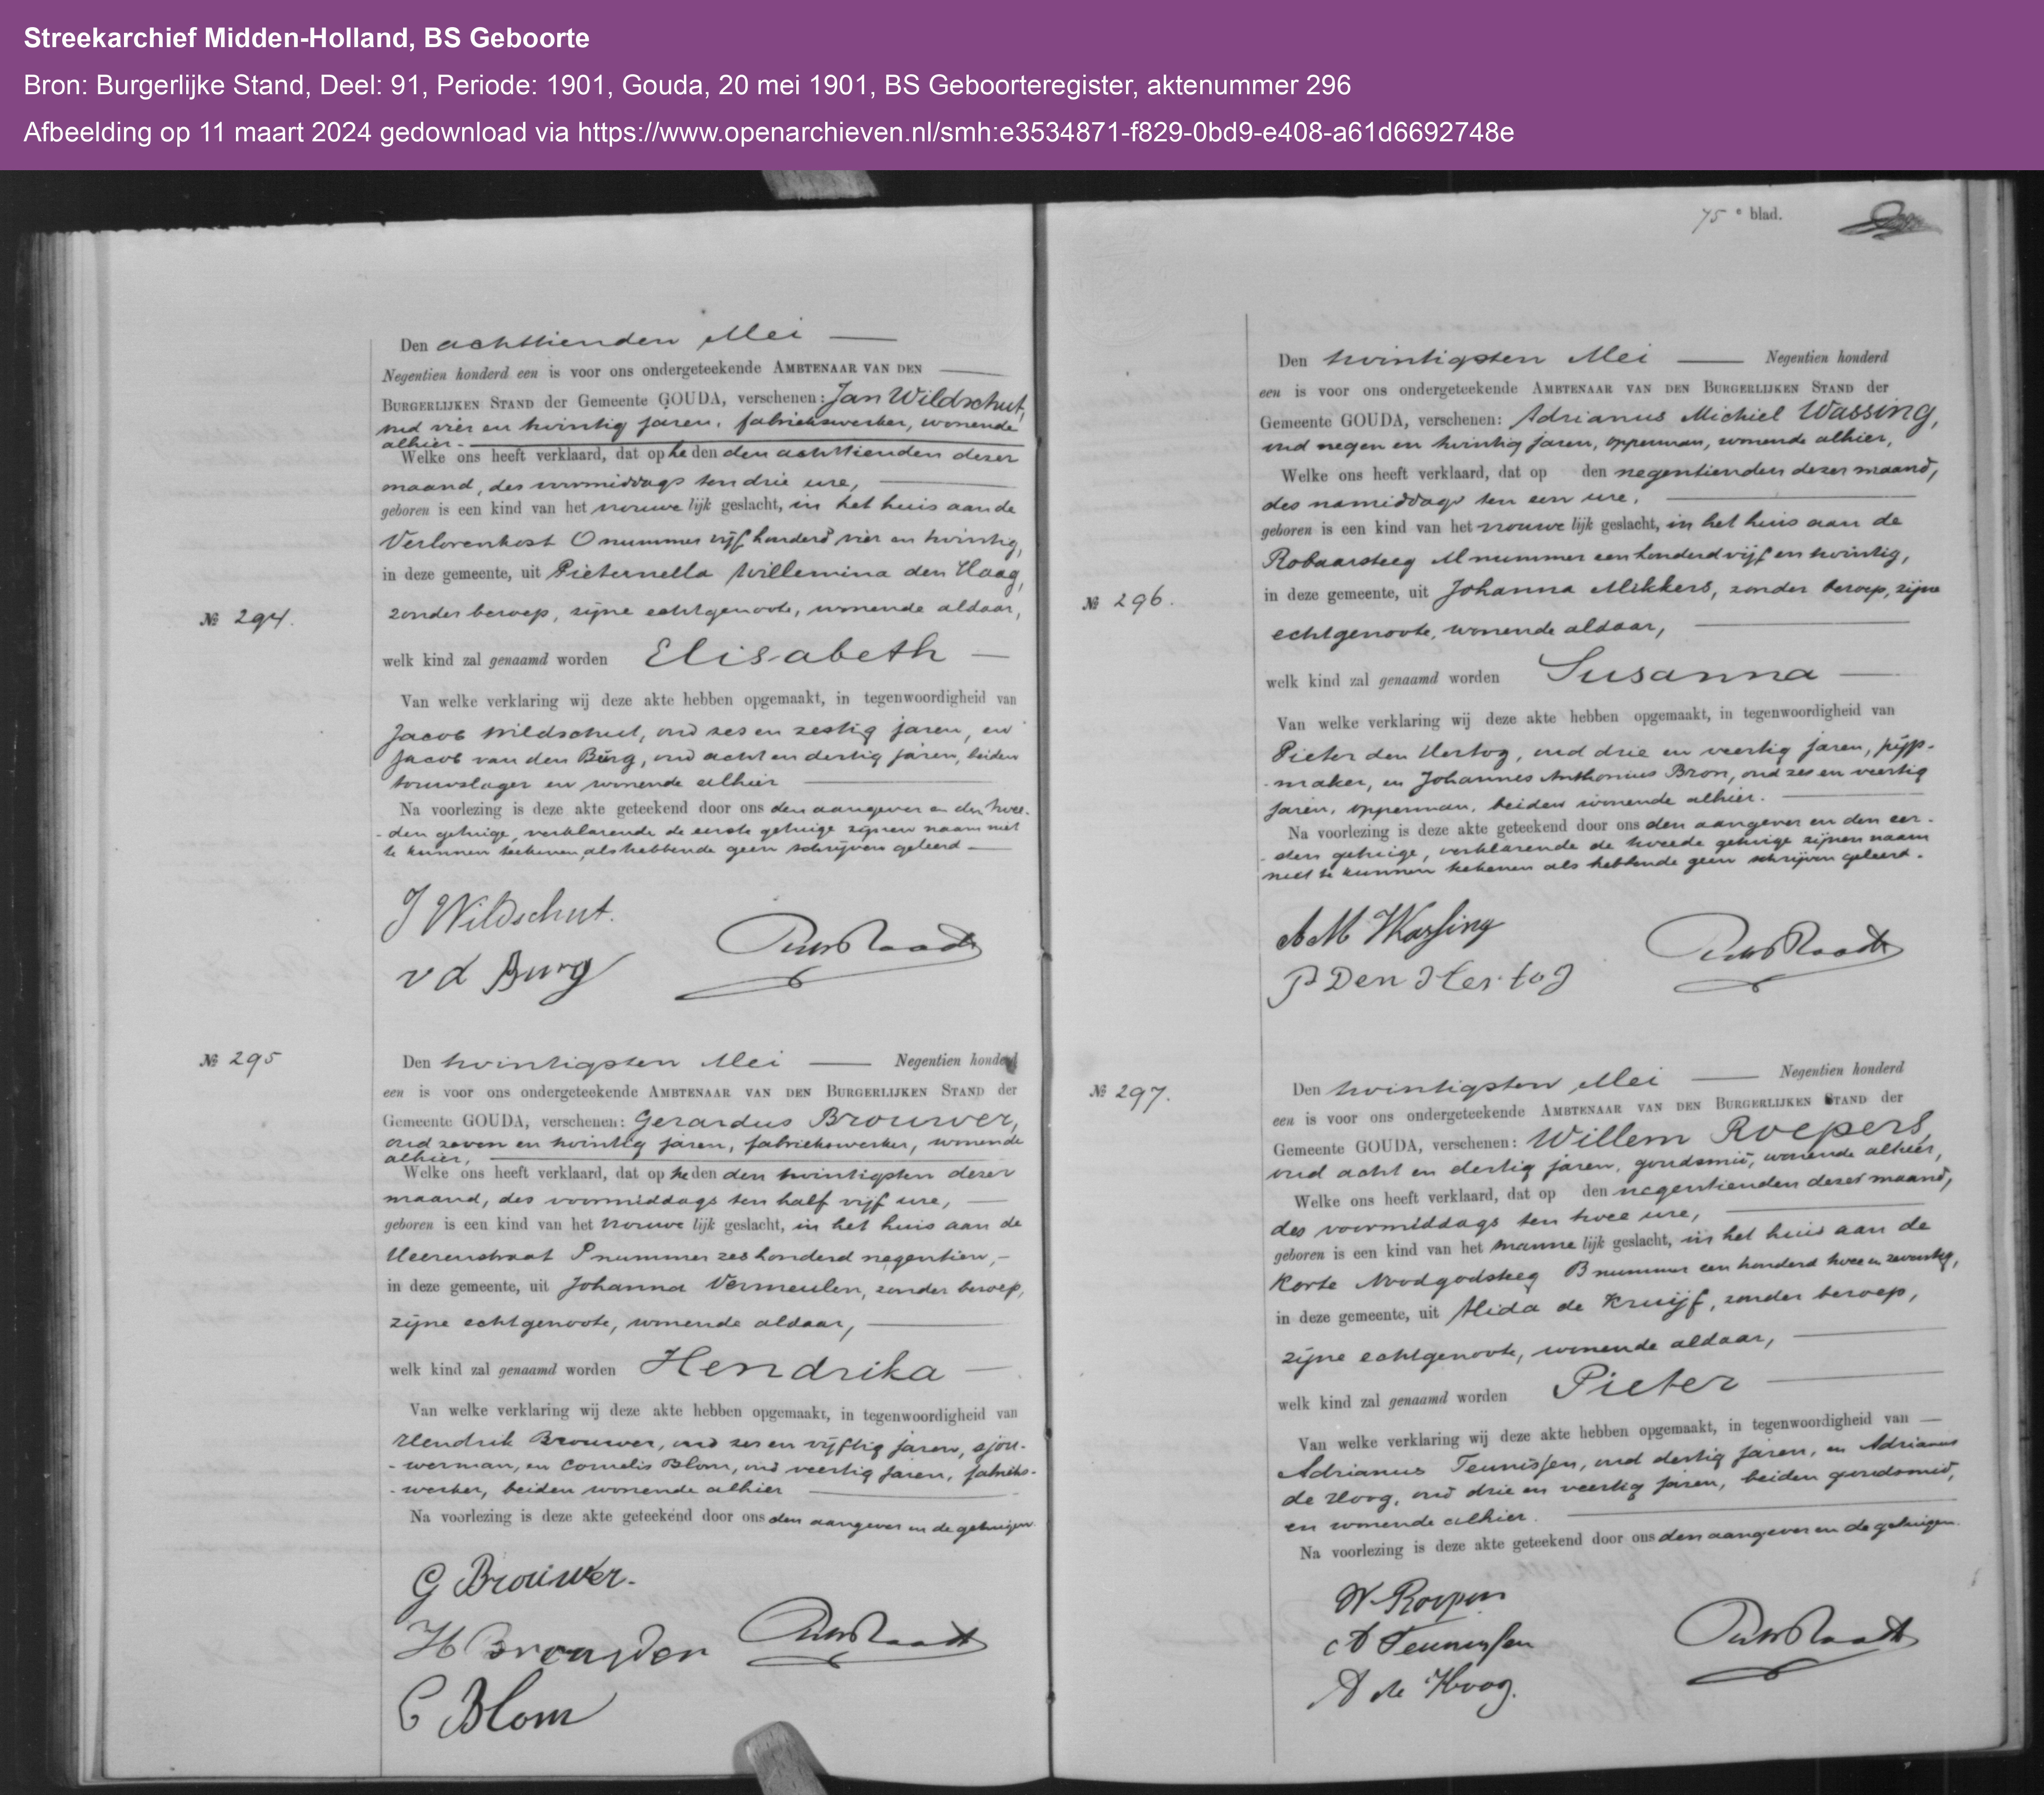 Streekarchief Midden-Holland, BS Geboorte
Bron: Burgerlijke Stand, Deel: 91, Periode: 1901, Gouda, 20 mei 1901, BS Geboorteregister, aktenummer 296
Afbeelding op 11 maart 2024 gedownload via https://www.openarchieven.nl/smh:e3534871-f829-0bd9-e408-a61d6692748e
Den achttienden Mei
Negentien honderd een is voor ons ondergeteekende AMBTENAAR VAN DEN
BURGERLIJKEN STAND der Gemeente GOUDA, verschenen: Jan Wildschut,
oud vier en twintig jaren, fabriekswerker, wonende
alhier.
Welke ons heeft verklaard, dat op heden den achttienden dezer
maand, des voormiddags ten drie ure,
geboren is een kind van het vrouwelijk geslacht, in het huis aan de
Verlorenkost O nummer vijf honderd vier en twintig,
in deze gemeente, uit Pieternella Willemina den Haag,
№ 294.
zonder beroep, zijne echtgenoote, wonende aldaar,
welk kind zal genaamd worden Elisabeth
Van welke verklaring wij deze akte hebben opgemaakt, in tegenwoordigheid van
Jacob Wildschut, oud zes en zestig jaren, en
Jacob van den Burg, oud acht en dertig jaren, beiden
touwslager en wonende alhier
Na voorlezing is deze akte geteekend door ons den aangever en den twee-
-den getuige, verklarende de eerste getuige zijnen naam niet
te kunnen teekenen, als hebbende geen schrijven geleerd
J Wildschut.
v d Burg
№ 295
Den twintigsten Mei Negentien honderd
een is voor ons ondergeteekende AMBTENAAR VAN DEN BURGERLIJKEN STAND der
Gemeente GOUDA, verschenen: Gerardus Brouwer,
oud zeven en twintig jaren, fabriekswerker, wonende
alhier,
Welke ons heeft verklaard, dat op heden den twintigsten dezer
maand, des voormiddags ten half vijf ure,
geboren is een kind van het vrouwelijk geslacht, in het huis aan de
Heerenstraat P nummer zes honderd negentien,
in deze gemeente, uit Johanna Vermeulen, zonder beroep,
zijne echtgenoote, wonende aldaar,
welk kind zal genaamd worden Hendrika
Van welke verklaring wij deze akte hebben opgemaakt, in tegenwoordigheid van
Hendrik Brouwer, oud zes en vijftig jaren, sjou-
-werman, en Cornelis Blom, oud veertig jaren, fabrieks-
-werker, beiden wonende alhier
Na voorlezing is deze akte geteekend door ons den aangever en de getuigen
G Brouwer.
H Brouwer
C Blom
75e blad.
Den twintigsten Mei Negentien honderd
een is voor ons ondergeteekende AMBTENAAR VAN DEN BURGERLIJKEN STAND der
Gemeente GOUDA, verschenen: Adrianus Michiel Wassing,
oud negen en twintig jaren, opperman, wonende alhier,
Welke ons heeft verklaard, dat op den negentienden dezer maand,
des namiddags ten een ure,
geboren is een kind van het vrouwelijk geslacht, in het huis aan de
Robaarsteeg M nummer een honderd vijf en twintig,
№ 296.
in deze gemeente, uit Johanna Mikkers, zonder beroep, zijne
echtgenoote, wonende aldaar,
welk kind zal genaamd worden Susanna
Van welke verklaring wij deze akte hebben opgemaakt, in tegenwoordigheid van
Pieter den Hertog, oud drie en veertig jaren, pijp-
-maker, en Johannes Anthonius Bron, oud zes en veertig
jaren, opperman, beiden wonende alhier.
Na voorlezing is deze akte geteekend door ons den aangever en den eer-
-sten getuige, verklarende de tweede getuige zijnen naam
niet te kunnen teekenen als hebbende geen schrijven geleerd.
A M Wassing
P Den Hertog
№ 297.
Den twintigsten Mei Negentien honderd
een is voor ons ondergeteekende AMBTENAAR VAN DEN BURGERLIJKEN STAND der
Gemeente GOUDA, verschenen: Willem Roepers,
oud acht en dertig jaren, goudsmid, wonende alhier,
Welke ons heeft verklaard, dat op den negentienden dezer maand,
des voormiddags ten twee ure,
geboren is een kind van het mannelijk geslacht, in het huis aan de
Korte Noodgodsteeg B nummer een honderd twee en zeventig,
in deze gemeente, uit Alida de Kruijf, zonder beroep,
zijne echtgenoote, wonende aldaar,
welk kind zal genaamd worden Pieter
Van welke verklaring wij deze akte hebben opgemaakt, in tegenwoordigheid van
Adrianus Teunissen, oud dertig jaren, en Adrianus
de Hoog, oud drie en veertig jaren, beiden goudsmid,
en wonende alhier.
Na voorlezing is deze akte geteekend door ons den aangever en de getuigen.
W. Roepers
A Teunissen
A de Hoog.